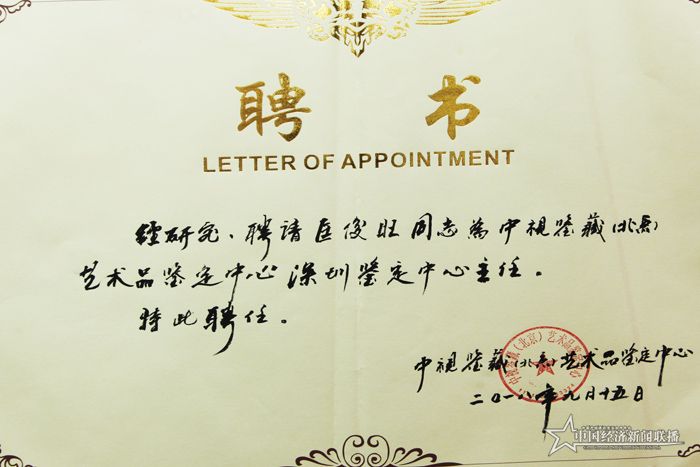 聘 书
LETTER OF APPOINTMENT
经研究、聘请匡俊旺同志为中視鉴藏(北京)
艺术品鉴定中心深圳鉴定中心主任。
特此聘任。
中視鉴藏(北京)艺术品鉴定中心
二〇一八年九月十五日
中国经济新闻联播